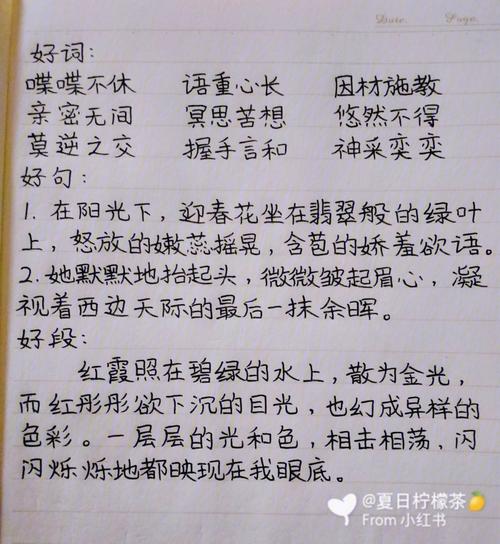 Date. Page.
好词:
喋喋不休 语重心长 因材施教
亲密无间 冥思苦想 悠然不得
莫逆之交 握手言和 神采奕奕
好句:
1. 在阳光下，迎春花坐在翡翠般的绿叶
上，怒放的嫩蕊摇晃，含苞的娇羞欲语。
2.她默默地抬起头，微微皱起眉心，凝
视着西边天际的最后一抹余晖。
好段:
红霞照在碧绿的水上，散为金光，
而红彤彤欲下沉的目光，也幻成异样的
色彩。一层层的光和色，相击相荡，闪
闪烁烁地都映现在我眼底。
@夏日柠檬茶🍋
From 小红书